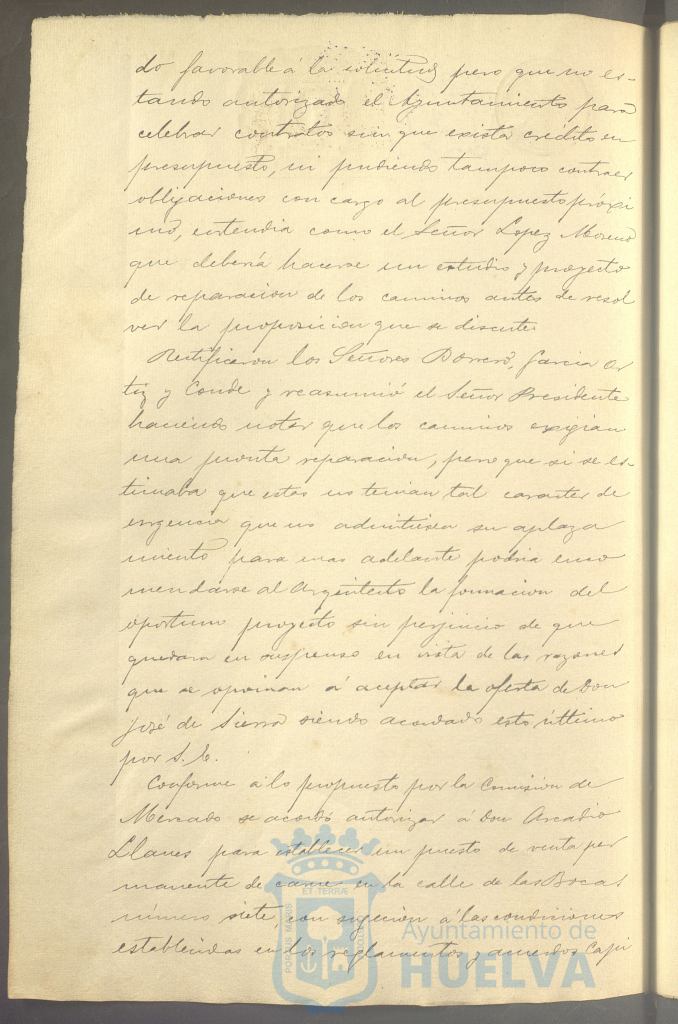 do favorable á la solicitud pero que no es-
tando autorizado el Ayuntamiento para
celebrar contratos sin que exista credito en
presupuesto, ni pudiendo tampoco contraer
obligaciones con cargo al presupuesto próxi
mo, entendia como el Señor Lopez Moreno
que debería hacerse un estudio y proyecto
de reparacion de los caminos antes de resol
ver la proposicion que se discute.
Rectificaron los Señores Borrero, Garcia Or
tiz y Conde y reasumió el Señor Presidente
haciendo notar que los caminos exigian
una pronta reparacion, pero que si se es-
timaba que estas no tenian tal caracter de
urgencia que no admitiesen su aplaza
miento para mas adelante podria enco
mendarse al Arquitecto la formacion del
oportuno proyecto sin perjuicio de que
quedara en suspenso en vista de las razones
que se oponian á aceptar la oferta de Don
José de Sierra siendo acordado esto último
por S. E.
Conforme á lo propuesto por la Comision de
Mercado se acordó autorizar á Don Arcadio
Llanes para establecer un puesto de venta per
manente de carne en la calle de las Bocas
número siete, con sugecion á las condiciones
establecidas en los reglamentos y acuerdos Capi
PORTUS MARIS
ET TERRÆ
CUSTODIA
Ayuntamiento de
HUELVA